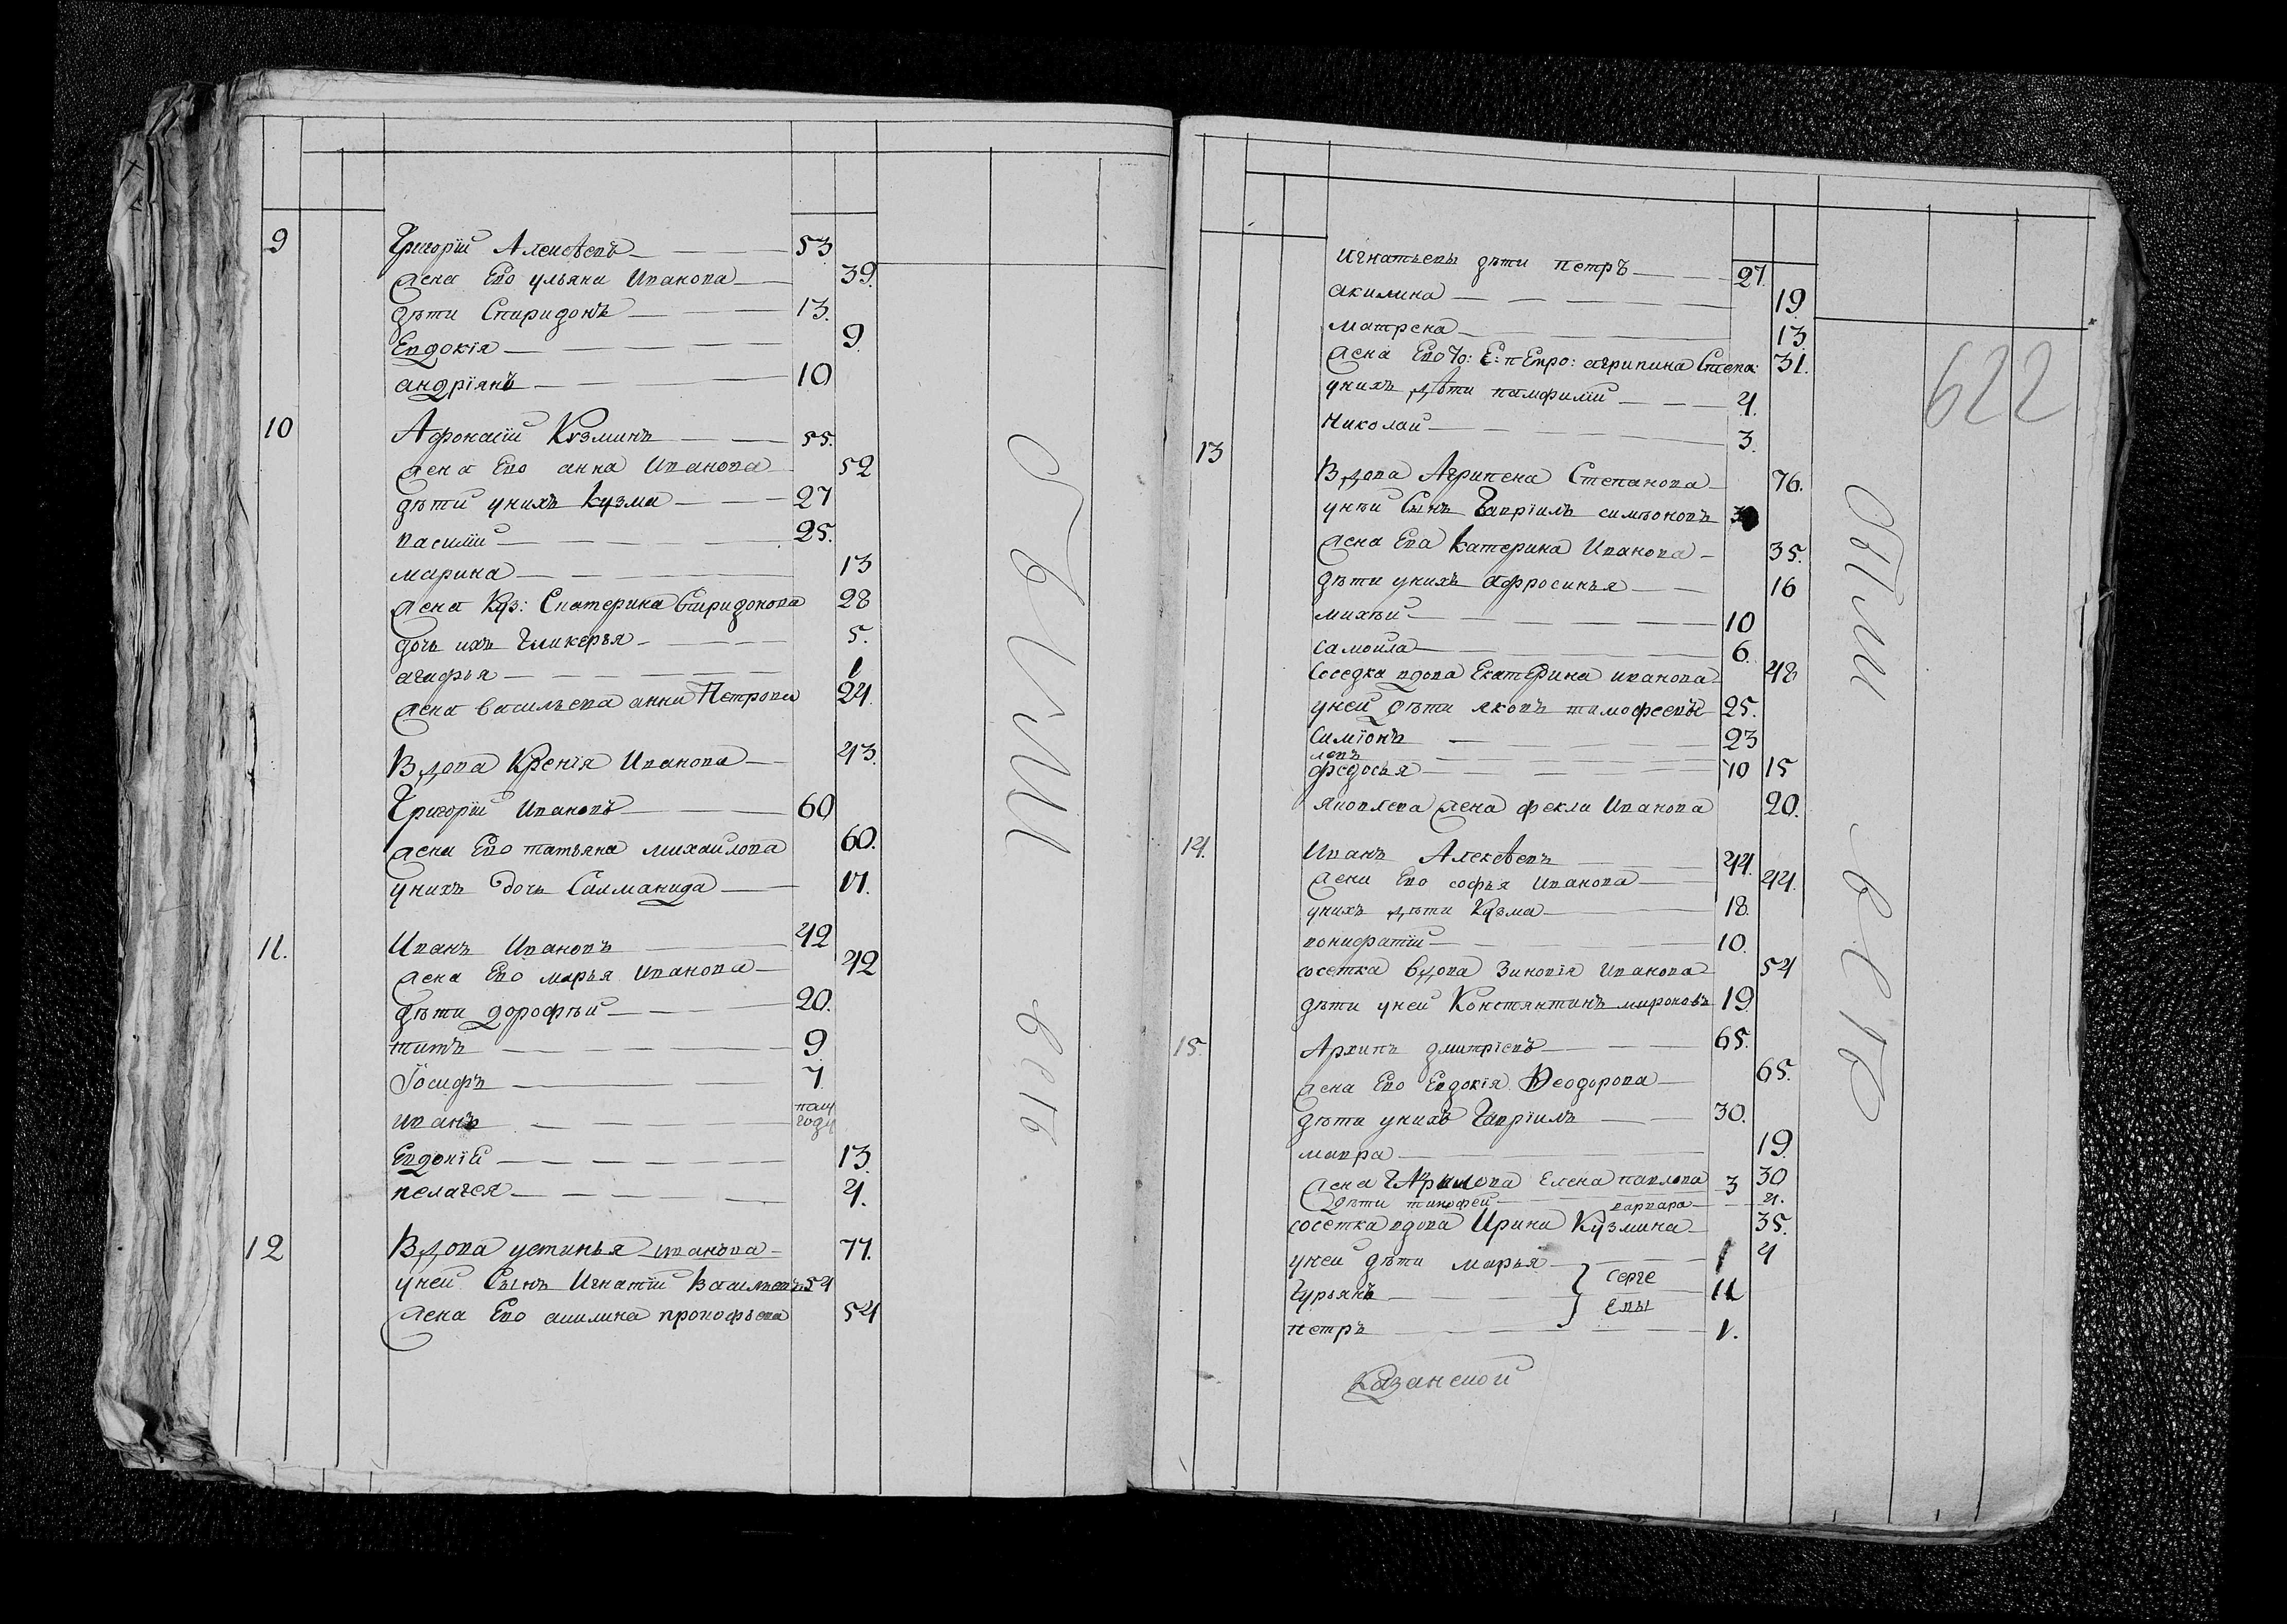 9 Григорïи Алексѣевъ 53
жена Ево ульяна Иванова 39.
дѣти Спиридонъ 13.
Евдокïя 9
андрïянъ 10
10 Афонасïи Кузминъ 55.
жена Ево анна Иванова 52
дѣти унихъ Кузма 27
василïи 25.
марина 13
жена Куз: Екатерина Спиридонова 28
дочь ихъ Гликерья 5.
агафья 1
жена васильева анна Петрова 24.
Вдова Ксенïя Иванова 43.
Григорïи Ивановъ 60
жена Ево татьяна михаилова 60.
унихъ дочь Саломанида
11. Иванъ Ивановъ 42
жена Ево марья Иванова 42
дѣти дорофѣи 20.
титъ 9
Iосифъ 7
иванъ
году
Евдокïя 13.
пелагея 4.
12 Вдова устинья иванова 77.
унеи Сынъ Игнатïи Васильевъ 54
жена Ево акилина прокофьева 54
обыли
вбѣ
игнатьевы дѣти петръ 27.
акилина 19
матрена 13
жена Ево агрипина Степа: 31.
унихъ дѣти памфилïи 4.
Николаи 3.
13 Вдова Агрипена Степанова 76.
унеи Сынъ Гаврïилъ симѣоновъ
жена Ева Катерина Иванова 35.
дѣти унихъ афросинья 16
михѣи 10
самоила 6
Соседка вдова Екатерина иванова 48
унеи дѣти яковъ тимофеевы 25.
Симïонъ 23
левъ 10
федосья 15
яковлева жена фекла Иванова 20.
14. Иванъ Алексѣевъ 44.
жена Ево софья Иванова 44.
унихъ дѣти Кузма 18.
вонифатïи 10.
сосетка вдова Зиновïя Иванова 54
дѣти унеи Константинъ мироновъ 19
15. Архипъ дмитрïевъ 65.
жена Ево Евдокïя Феодорова 65.
дѣти унихъ Гаврïилъ 30.
мавра 19
жена Гаврилова Елена павлова 30
дѣти тимофеи 3 варвара 4.
сосетка вдова Ирина Кузмина 35.
унеи дѣти марья 4
Гурьянъ 11
Серге
евы
петръ 1.
казанскои
были
622